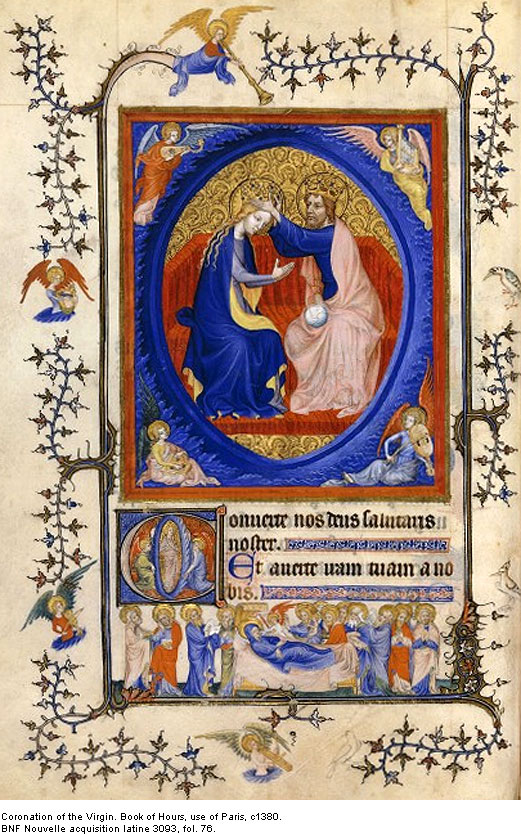 Conuerte nos deus salutaris
noster.
Et auerte iram tuam a no
bis.
Coronation of the Virgin. Book of Hours, use of Paris, c1380.
BNF Nouvelle acquisition latine 3093, fol. 76.